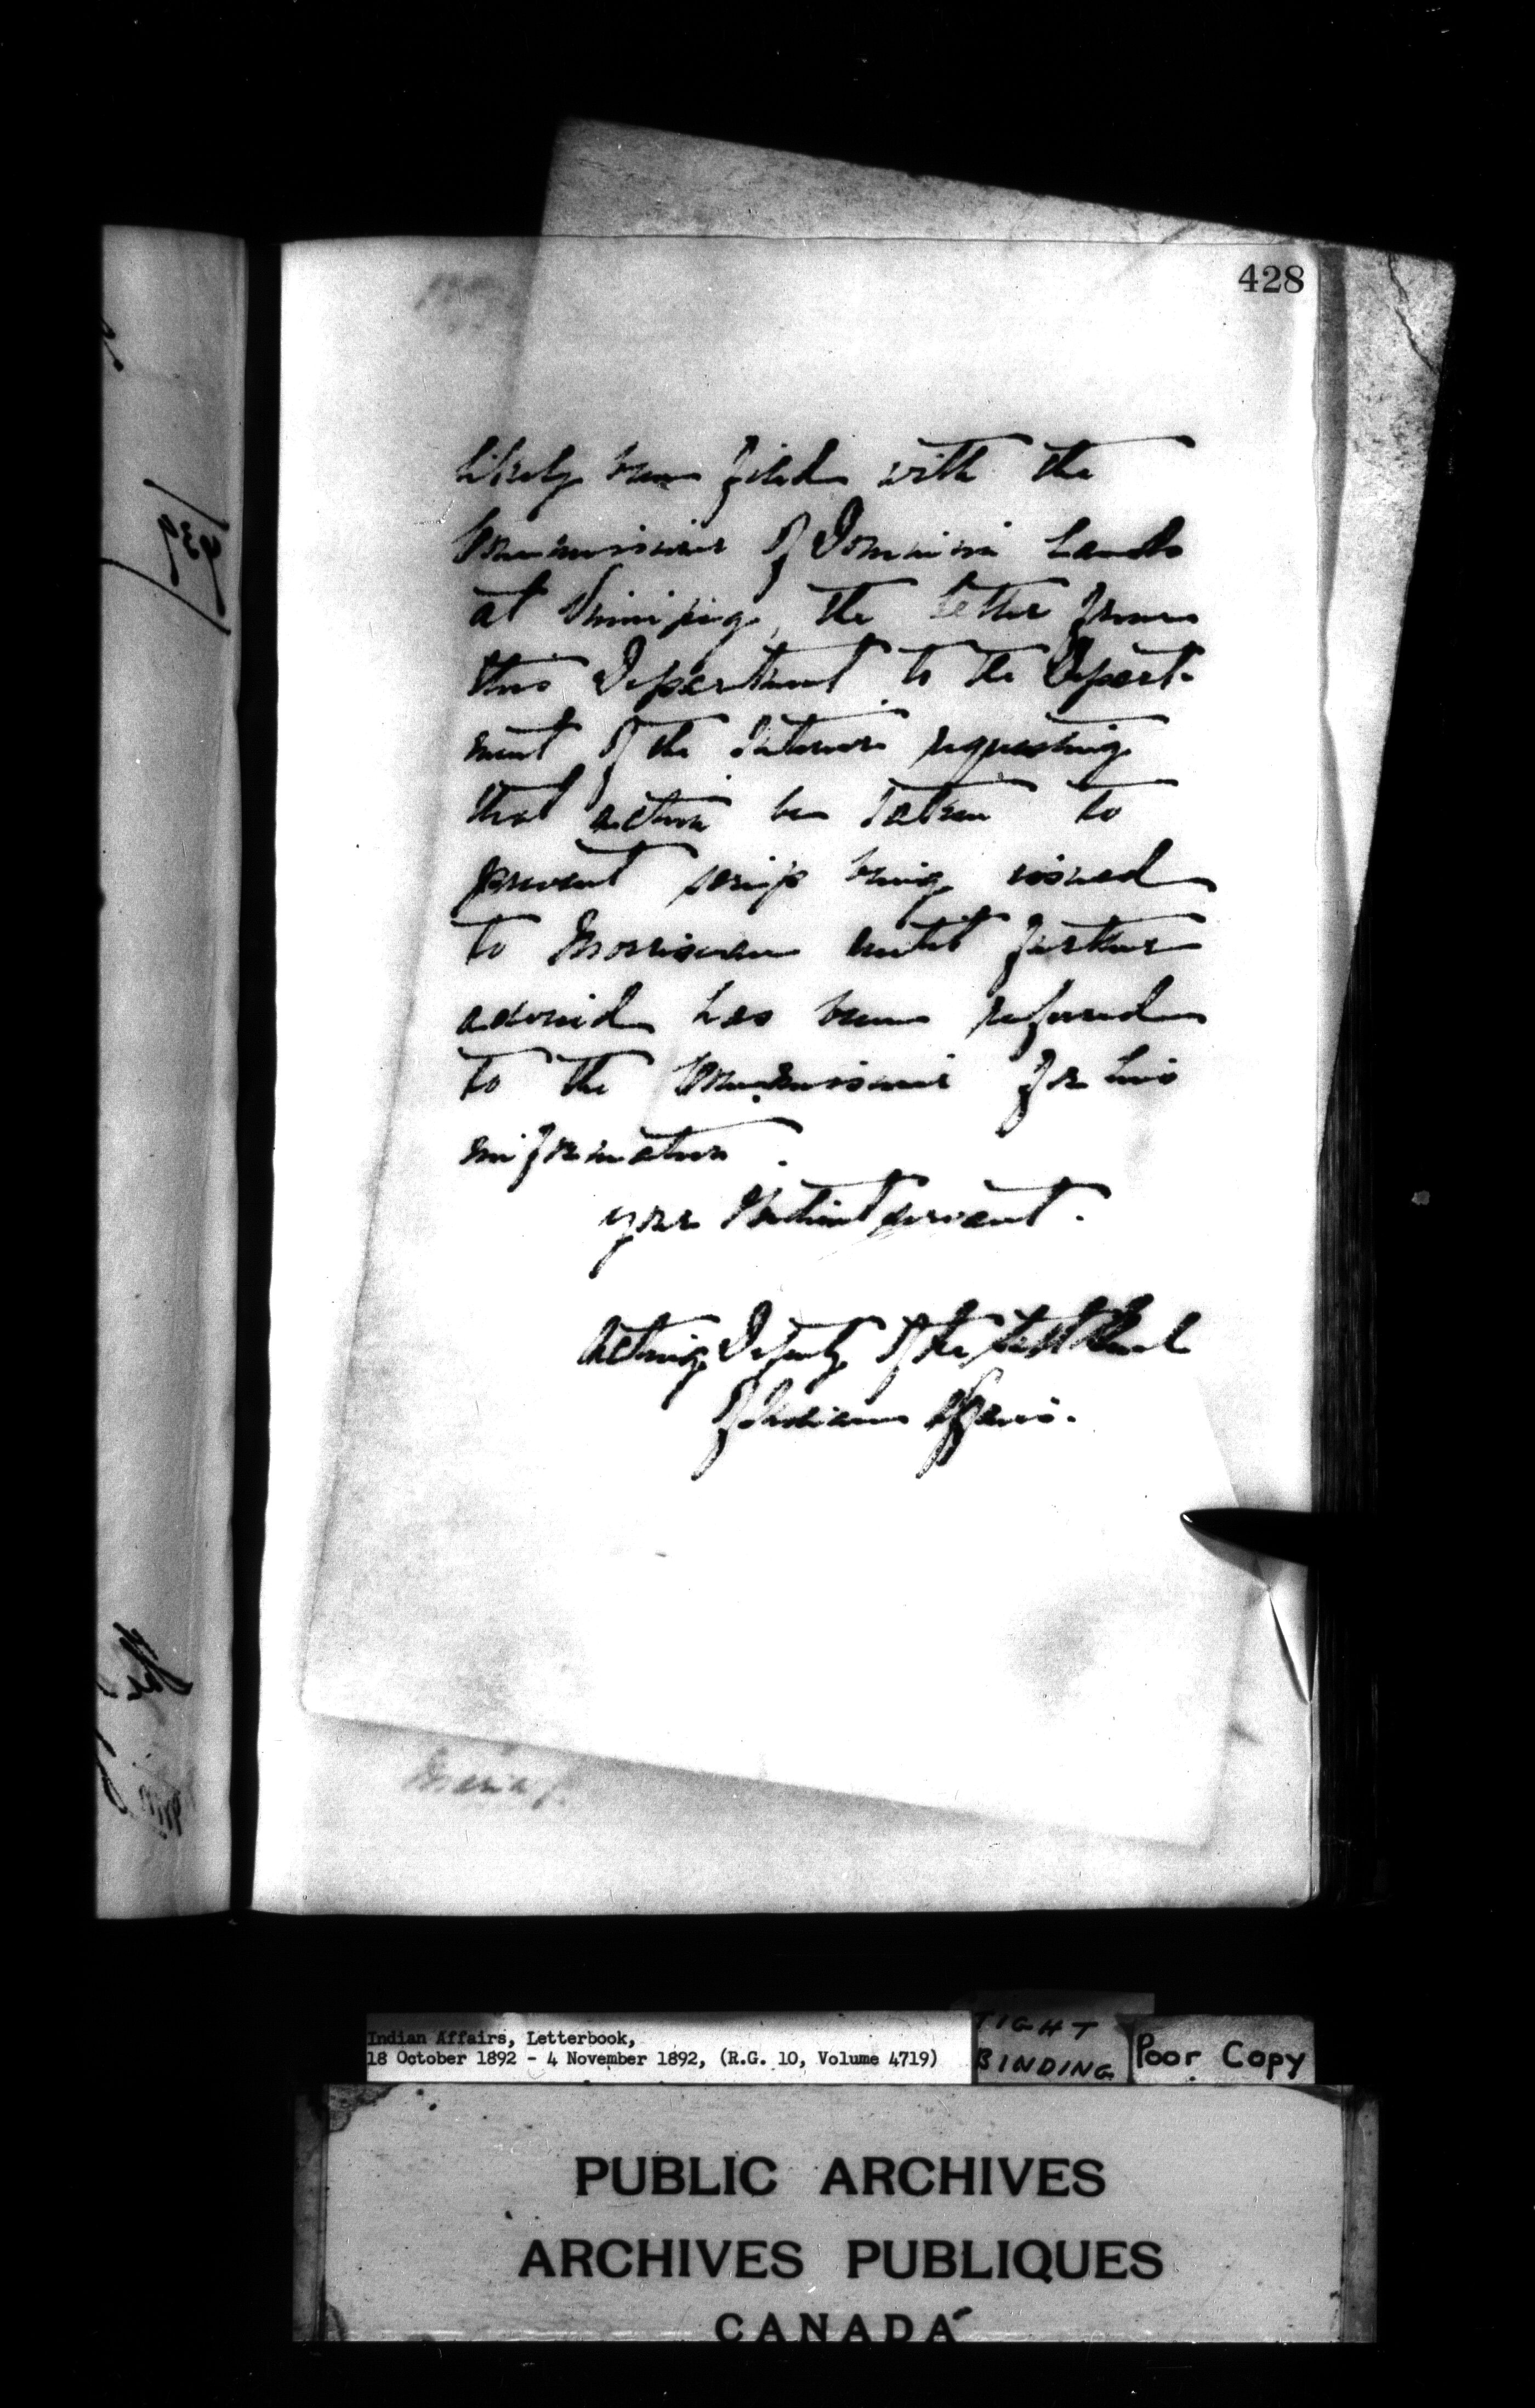 428
likely been filed with the
Commissioner of Dominion Lands
at Winnipeg, the letter from
this Department to the Depart-
ment of the Interior requesting
that action be taken to
prevent scrip being issued
to Morrisseau until further
advised has been referred
to the Commissioner for his
information.
your obedient servant.
Acting Deputy of the Supt Genl
of Indian Affairs.
Indian Affairs, Letterbook,
18 October 1892 - 4 November 1892, (R.G. 10, Volume 4719)
TIGHT
BINDING
Poor Copy
PUBLIC ARCHIVES
ARCHIVES PUBLIQUES
CANADA